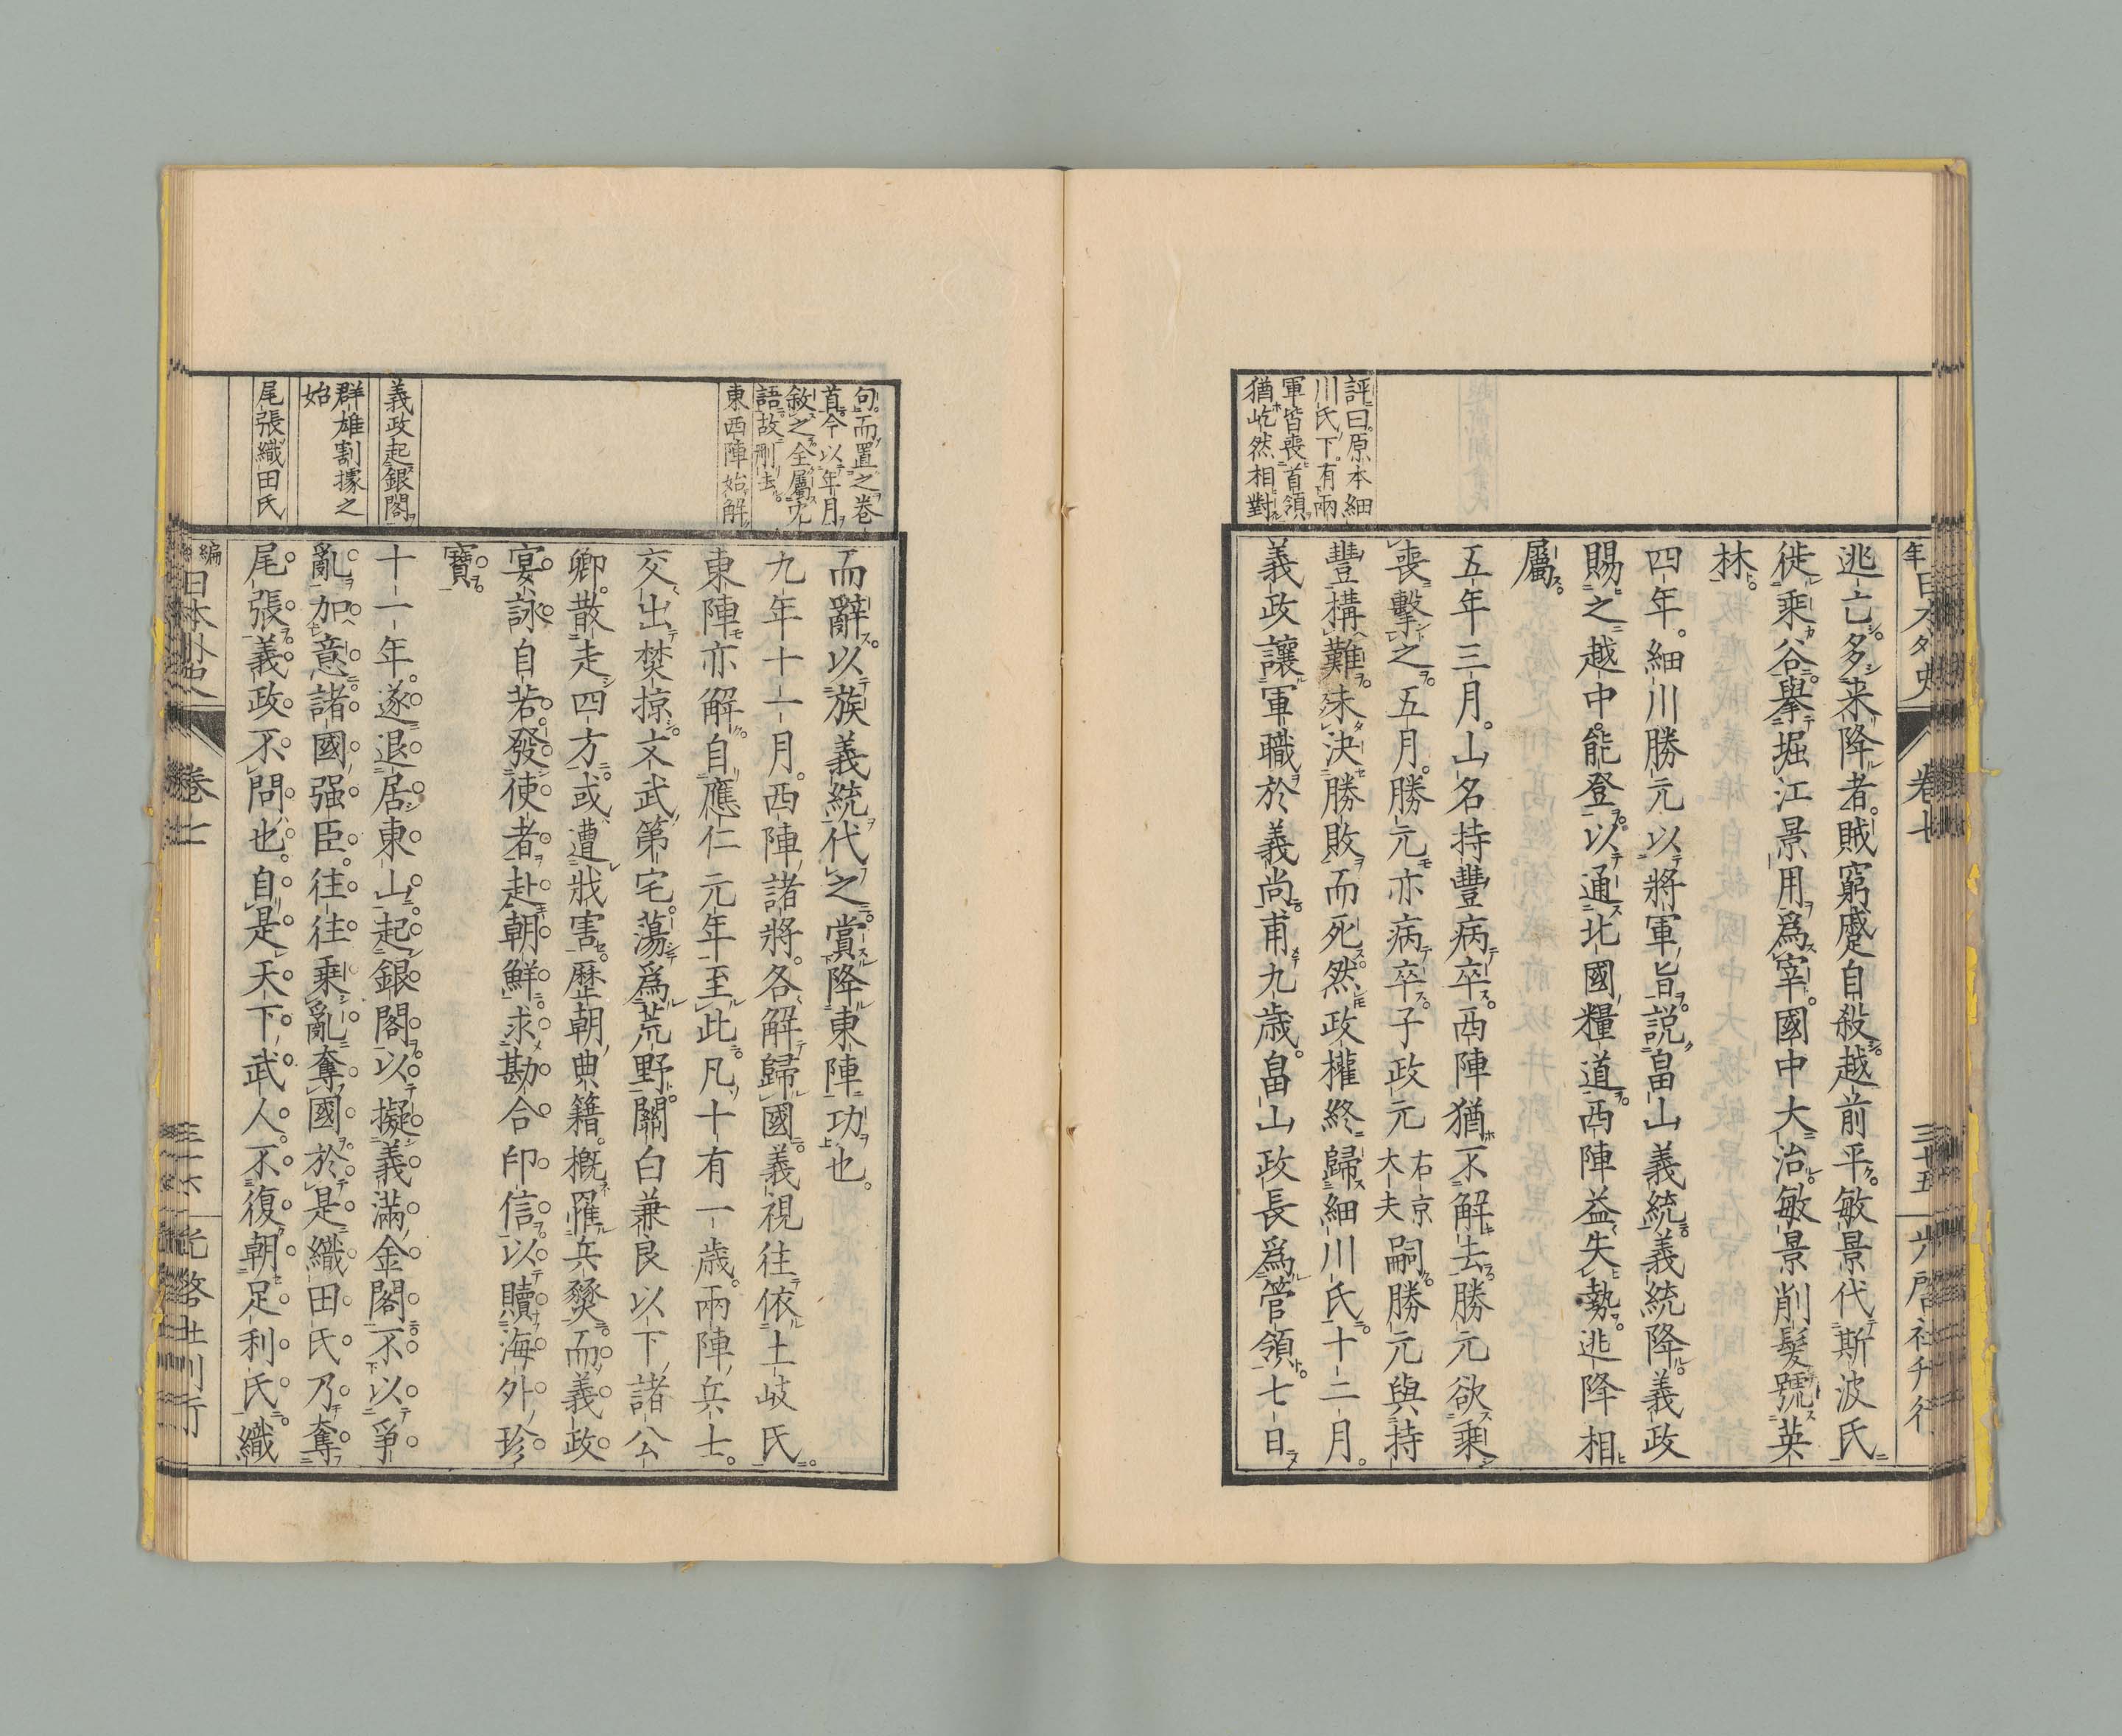 評曰原本細
川氏下有兩
軍皆喪首領
猶屹然相對
逃亡多来降者。賊窮蹙自殺越前平。敏景代斯波氏
徙乘谷擧堀江景用爲宰。國中大治。敏景削髮號英
林。
四年。細川勝元以將軍旨説畠山義統。義統降。義政
賜之越中。能登。以通北國糧道。西陣益失勢。逃降相
屬。
五年三月。山名持豐病卒。西陣猶不解去。勝元欲乘
喪擊之。五月。勝元亦病卒。子政元右京大夫嗣。勝元與持
豐構難。未決勝敗而死。然政權終歸細川氏。十二月。
義政讓軍職於義尚。甫九歳。畠山政長爲管領。七日
句而置之卷
首今以年月
敘之全屬冗
語故刪去。
東西陣始解
義政起銀閣
群雄割據之
始
尾張織田氏
而辭。以族義統代之。賞降東陣功也。
九年十一月。西陣諸將。各解歸國。義視往依土岐氏。
東陣亦解。自應仁元年至此。凡十有一歳。兩陣兵士。
交出焚掠。文武第宅。蕩爲荒野。關白兼良以下諸公
卿。散走四方。或遭戕害。歷朝典籍。概罹兵燹。而義政
宴詠自若。發使者赴朝鮮。求勘合印信。以贖海外珍
寶。
十一年。遂退居東山。起銀閣。以擬義滿金閣。不以爭
亂加意。諸國强臣。往往乘亂奪國。於是織田氏乃奪
尾張。義政不問也。自是天下武人。不復朝足利氏。織
編
日本外史
卷七
三十六
光啓社刊行